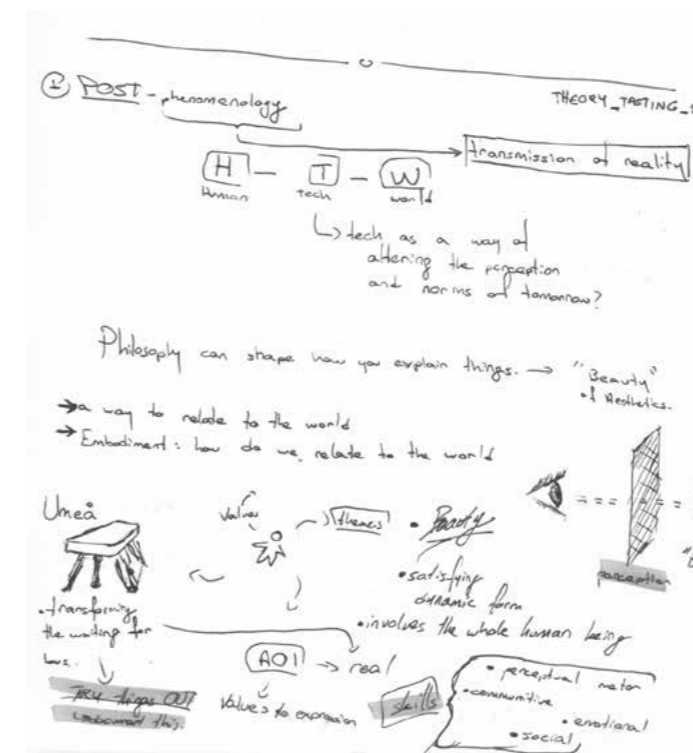 ① POST - phenomenology
THEORY_TASTING_
transmission of reality
H - T - W
Human tech world
tech as a way of
altering the perception
and norms of tomorrow?
Philosophy can shape how you explain things. → "Beauty"
of Aesthetics.
→ a way to relate to the world
→ Embodiment: how do we relate to the world
Umeå
values
themes
• Beauty
• satisfying
dynamic form
• involves the whole human being
perception
• transforming
the waiting for
bus.
TRY things OUT
AOI → real
Values to expression
skills
• perceptual motor
• emotional
• social